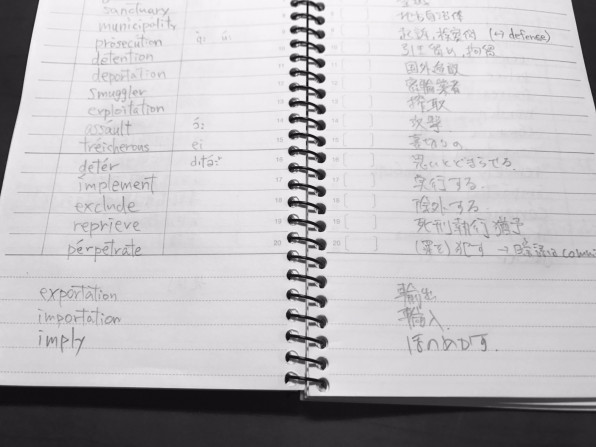 sanctuary
municipality
地方自治体
prosecution
起訴, 検察側 (↔ defense)
detention
引き留め, 拘留
deportation
国外追放
smuggler
密輸業者
exploitation
搾取
assault ɔ́ː
攻撃
treicherous ei
裏切りの
deter ditə́ːr
思いとどまらせる
implement
実行する
exclude
除外する
reprieve
死刑執行猶予
20 perpetrate
20 (罪を)犯す
exportation
輸出
importation
輸入
imply
ほのめかす